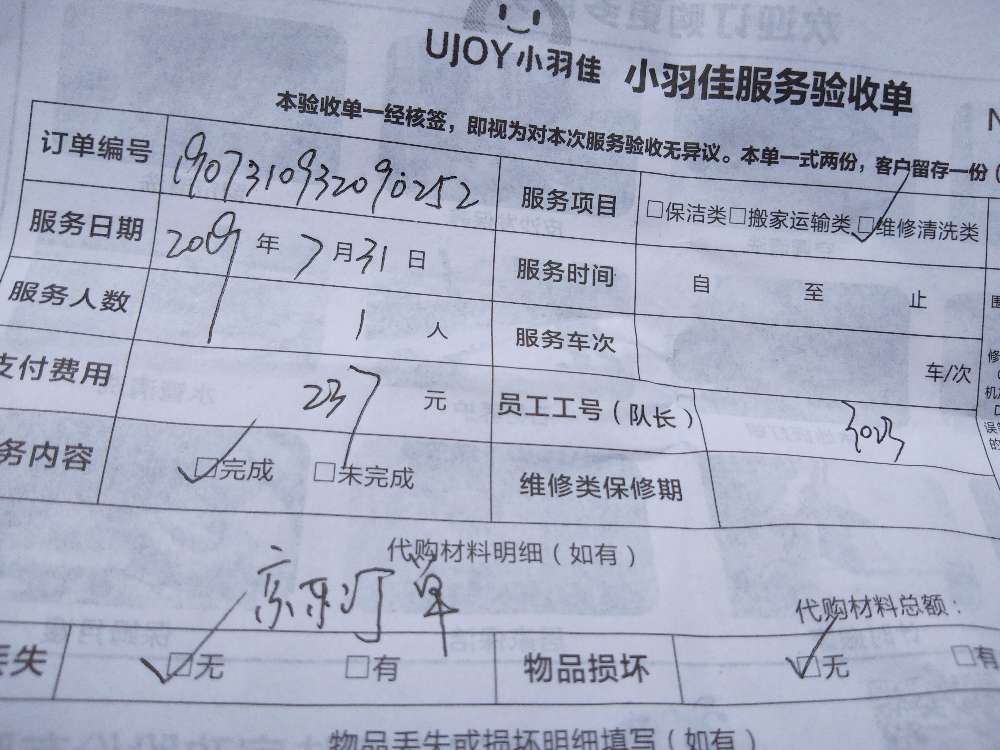 UJOY小羽佳 小羽佳服务验收单
本验收单一经核签，即视为对本次服务验收无异议。本单一式两份，客户留存一份（
订单编号 1907310932090252 服务项目 □保洁类□搬家运输类□维修清洗类
服务日期 2019年7月31日 服务时间 自 至 止
服务人数 1人 服务车次 车/次
支付费用 237元 员工工号（队长）
务内容 □完成 □未完成 维修类保修期
代购材料明细（如有）
京东订单
代购材料总额：
丢失 □无 □有 物品损坏 □无 □有
物品丢失或损坏明细填写（如有）